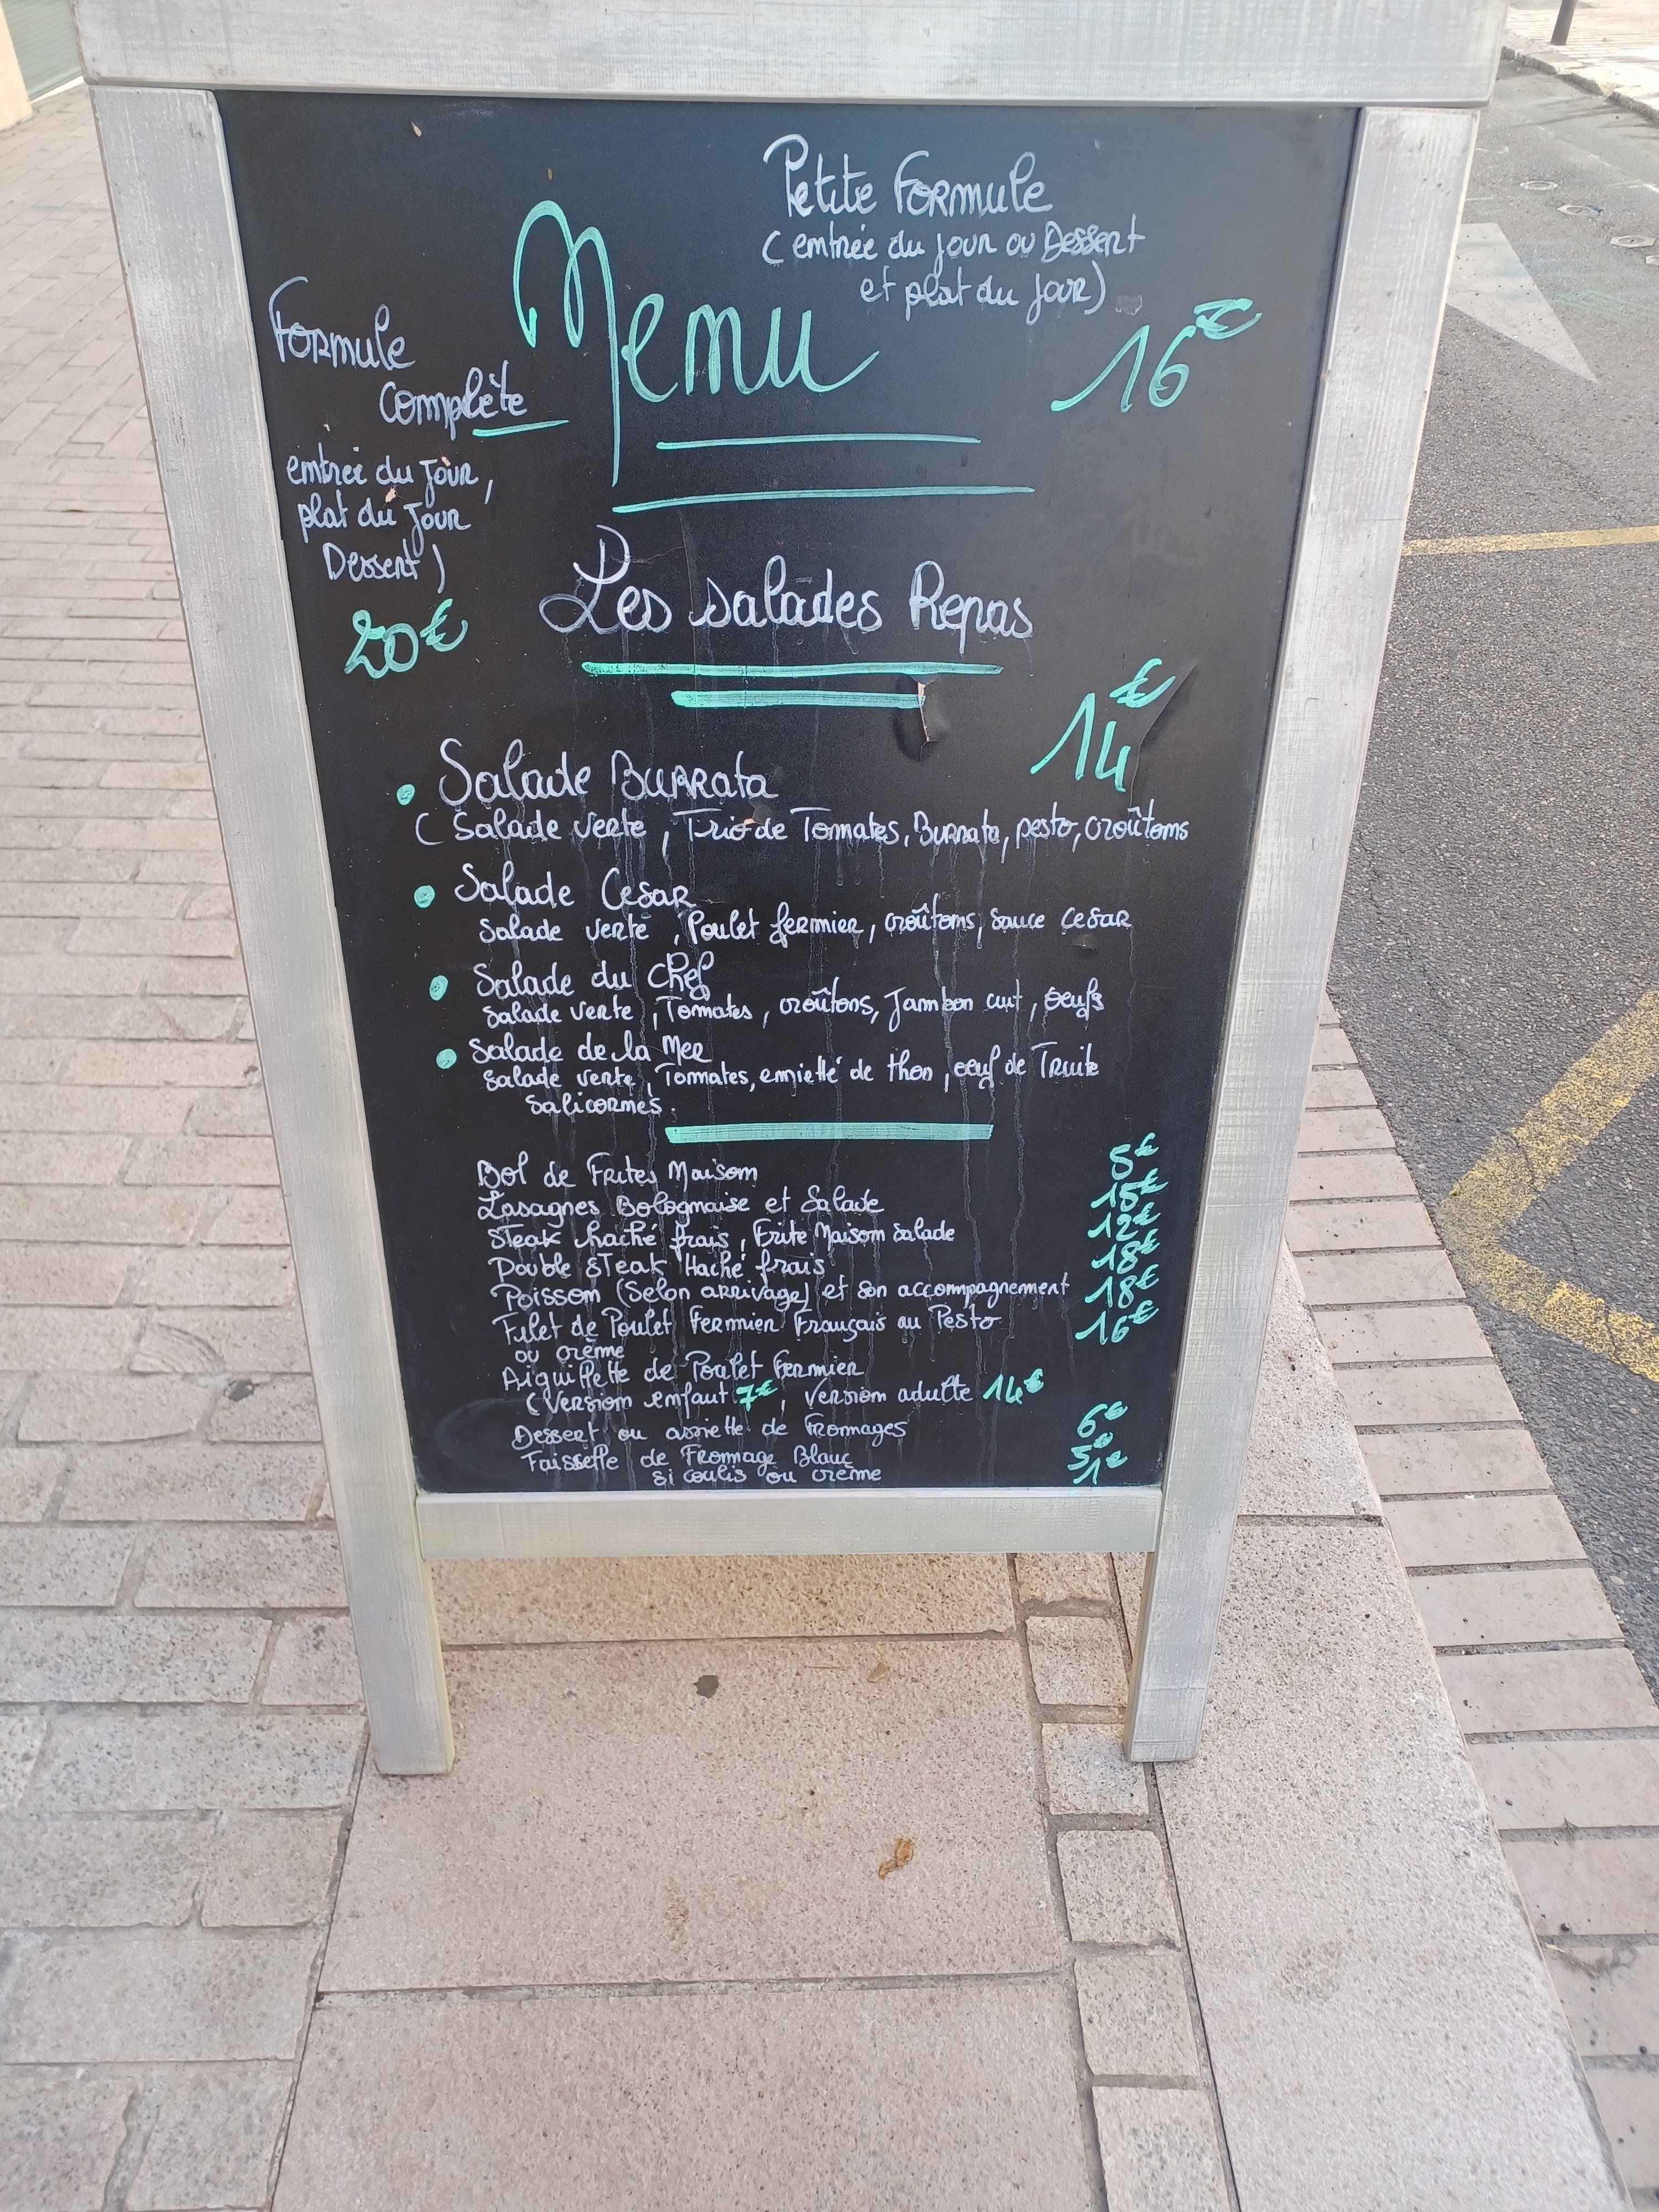 Petite Formule
(entrée du jour ou Dessert
et plat du jour)
16€
Menu
Formule
Complète
entrée du Jour,
plat du Jour
Dessert)
20€
Les salades Repas
14€
• Salade Burrata
( Salade verte, Trio de Tomates, Burrata, pesto, croûtons
• Salade Cesar
Salade verte, Poulet fermier, croûtons, sauce cesar
• Salade du Chef
Salade verte, Tomates, croûtons, Jambon cuit, oeufs
• Salade de la Mer
Salade verte, Tomates, emietté de thon, oeuf de Truite
Salicornes.
Bol de Frites Maison 5€
Lasagnes Bolognaise et Salade 15€
Steak haché frais, Frite Maison Salade 12€
Double STeak Haché frais 18€
Poisson (Selon arrivage) et son accompagnement 18€
Filet de Poulet Fermier Français au Pesto 16€
ou crème
Aiguillette de Poulet Fermier
(Version enfant 7€, version adulte 14€
Dessert ou assiette de Fromages 6€
Faisselle de Fromage Blanc 5€
si coulis ou crème 1€